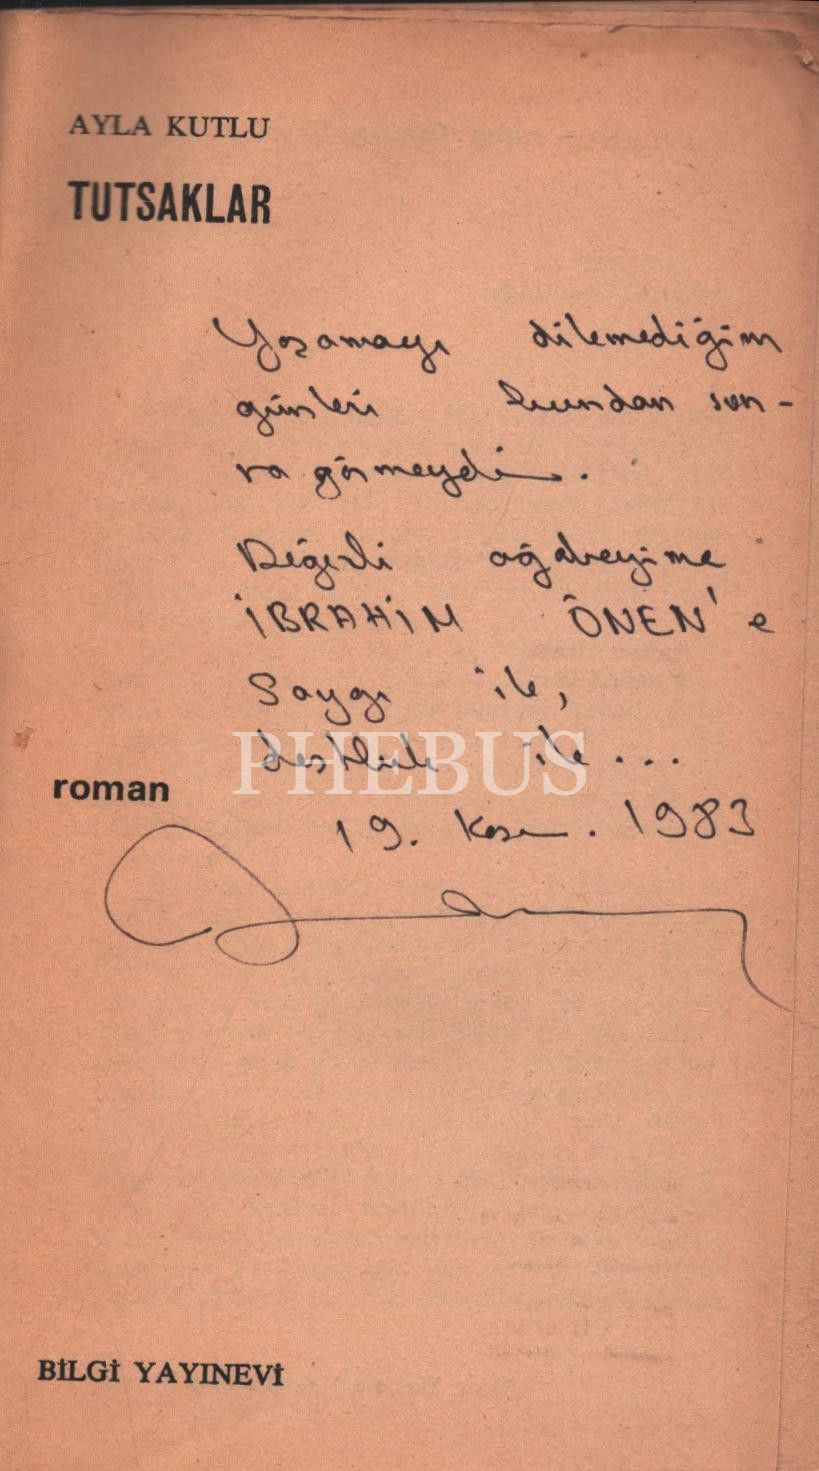 AYLA KUTLU
TUTSAKLAR
Yaşamayı dilemediğim
günleri bundan son-
ra görmeydim.
Değerli ağabeyime
İBRAHİM ÖNEN'e
Saygı ile,
dostluk ile...
roman
19. Kasım. 1983
PHEBUS
BİLGİ YAYINEVİ